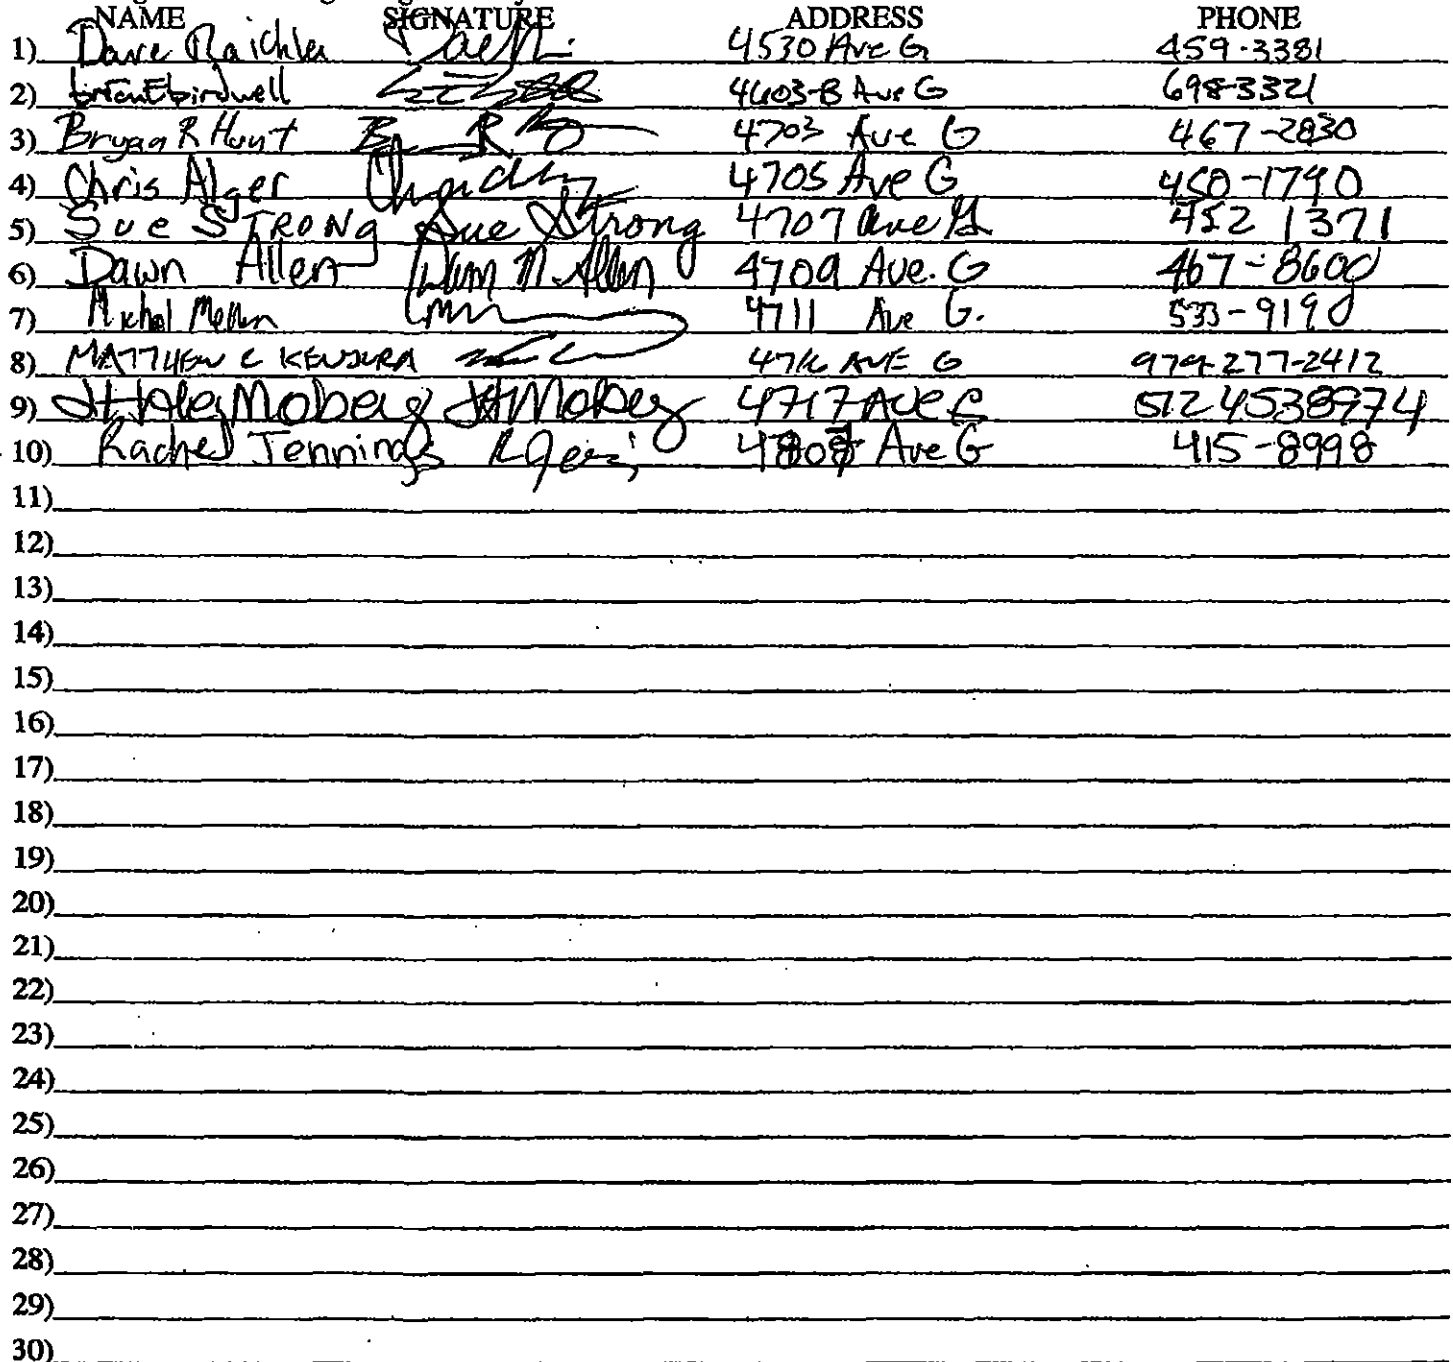 NAME SIGNATURE ADDRESS PHONE
1) Dave Raichle 4530 Ave G 459-3381
2) brian E birdwell 4603-B Ave G 698-3321
3) Bryan R Hunt 4703 Ave G 467-2830
4) Chris Alger 4705 Ave G 450-1790
5) Sue STRONG Sue Strong 4707 Ave G 452 1371
6) Dawn Allen Dawn M. Allen 4709 Ave. G 467-8600
7) 4711 Ave G. 533-9190
8) MATTHEW C KENJURA AVE G 979-277-2412
9) Moberg 4717 Ave G 512 4538974
10) Rachel Jennings Ave G 415-8998
11)
12)
13)
14)
15)
16)
17)
18)
19)
20)
21)
22)
23)
24)
25)
26)
27)
28)
29)
30)